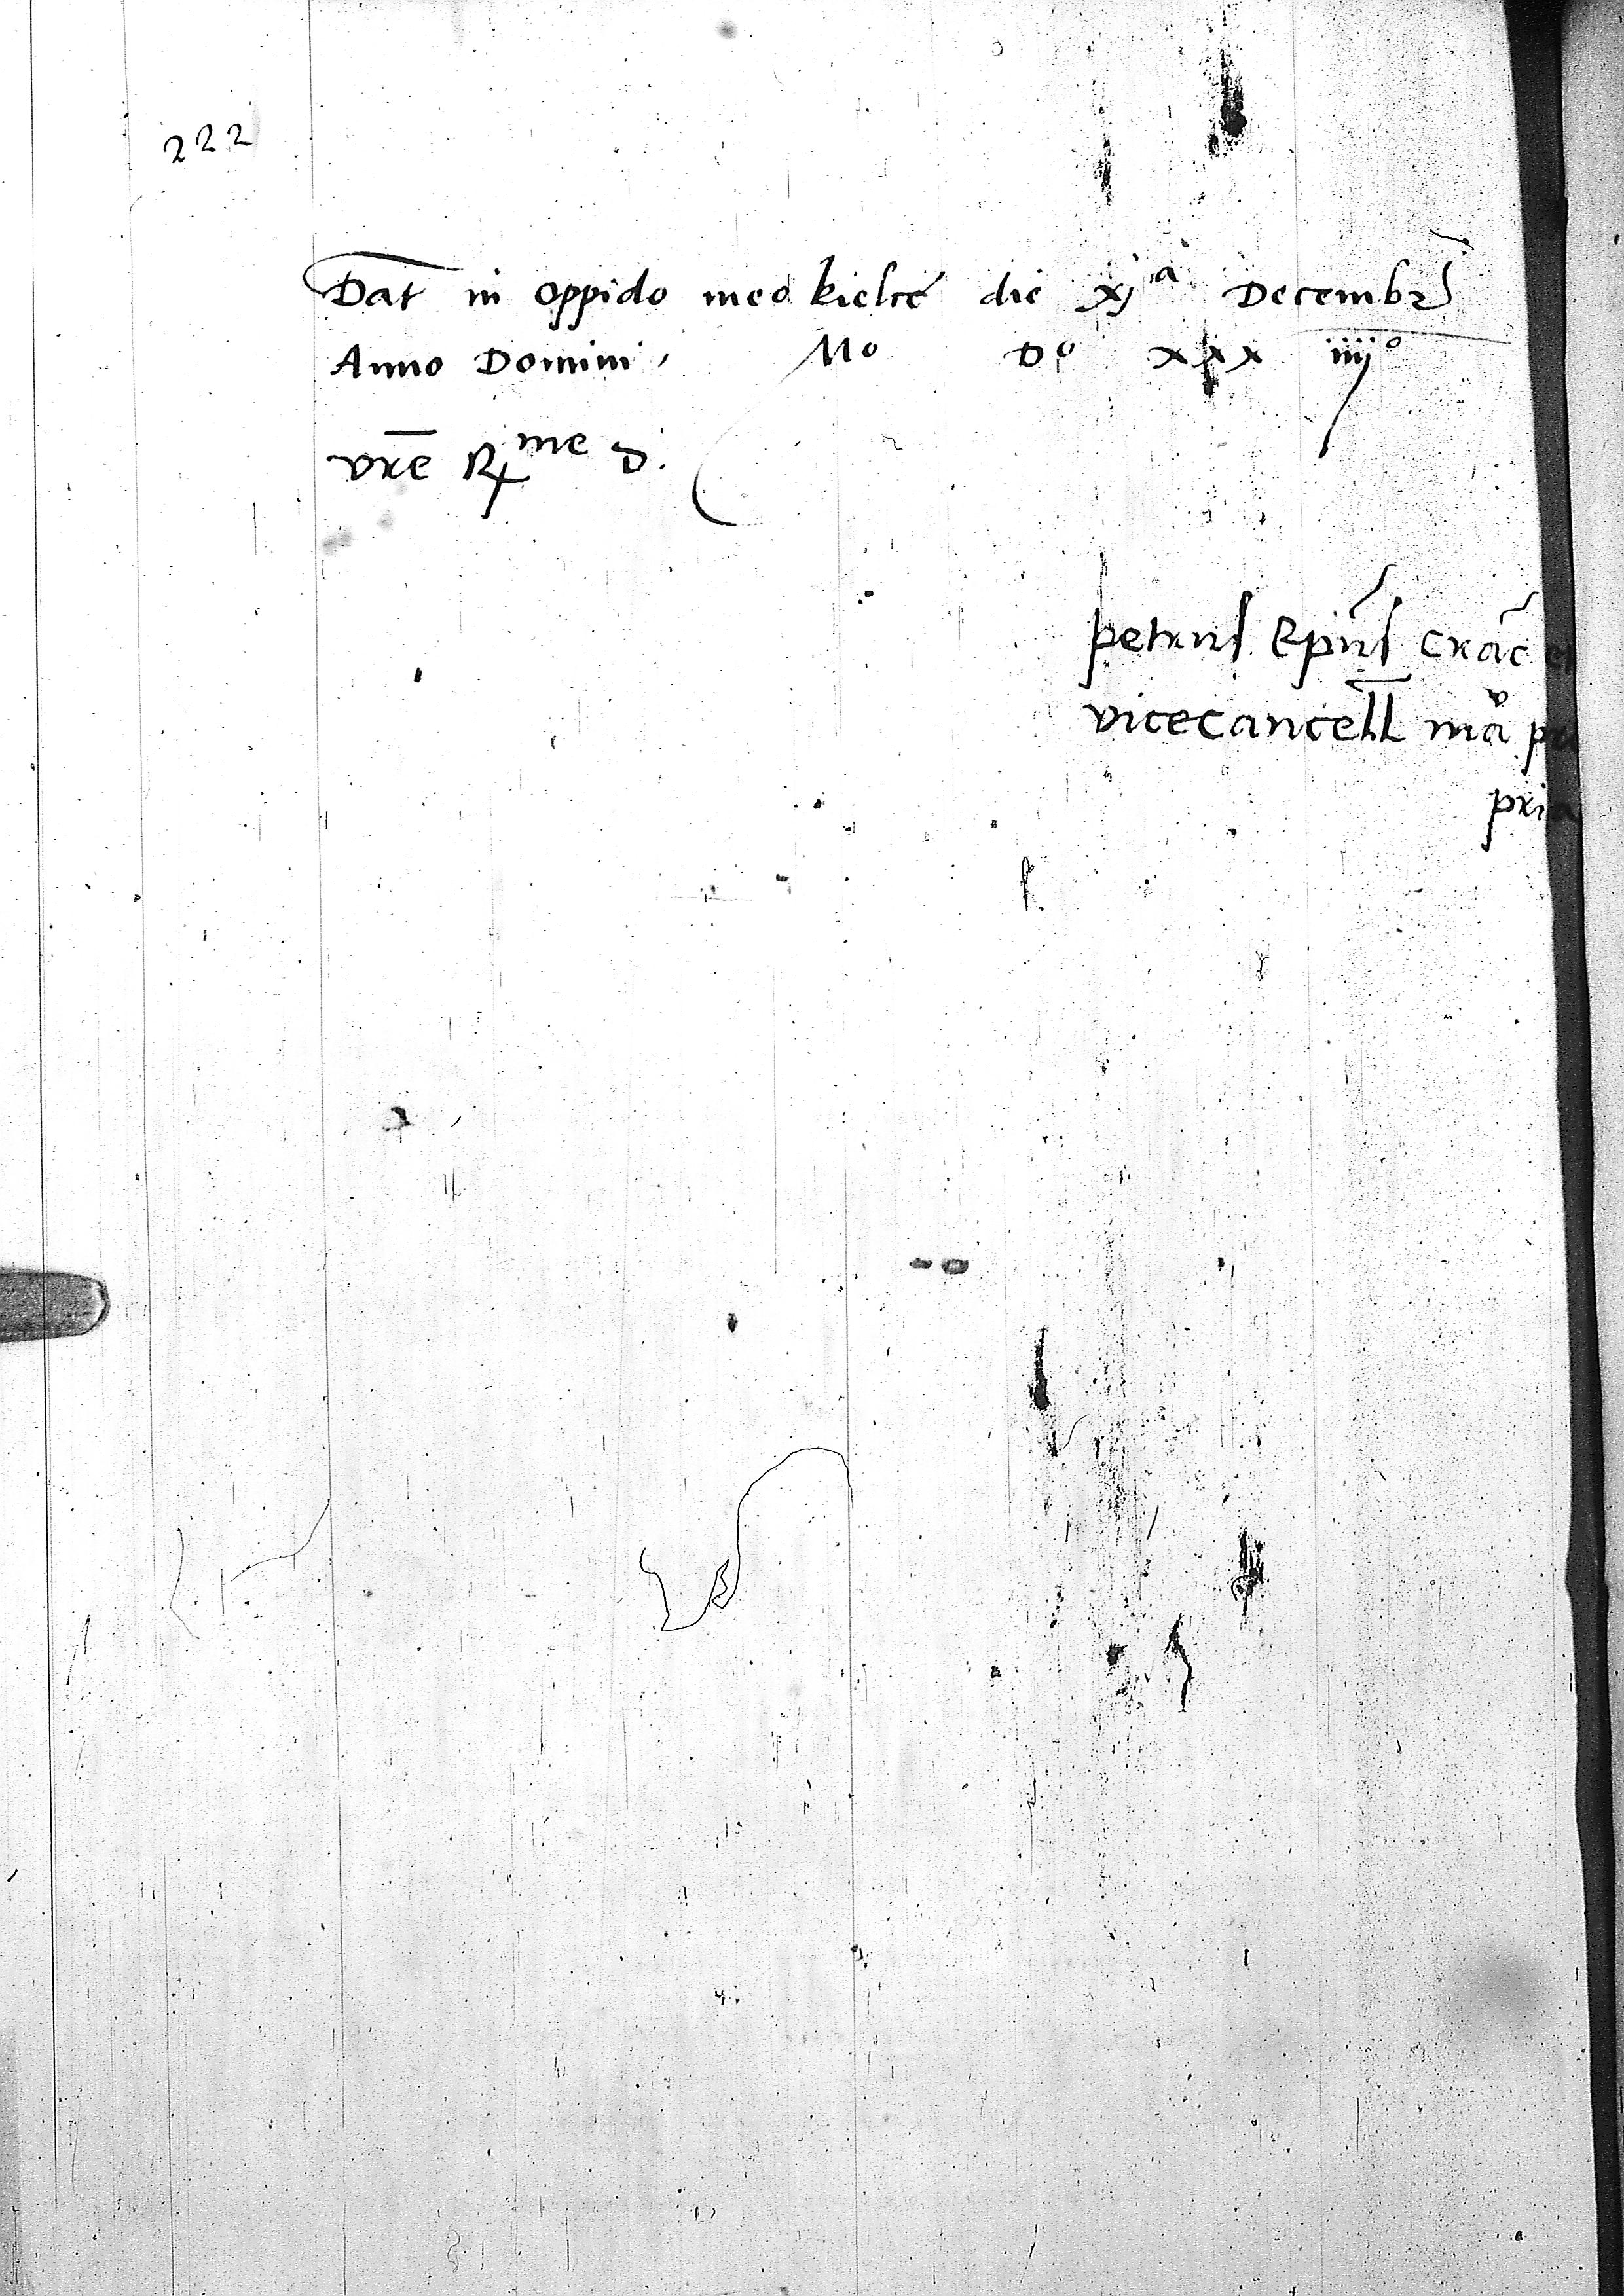 222
Dat̄ in oppido meo kielcē die xjᵃ Decembrꝭ
Anno Domini, Mᵒ Dᵒ xxx iiijᵒ
vr̄e Rᵐᵉ d.
petrus Ep̄us Crac̄ et
vicecancell̄ mā pro
pria